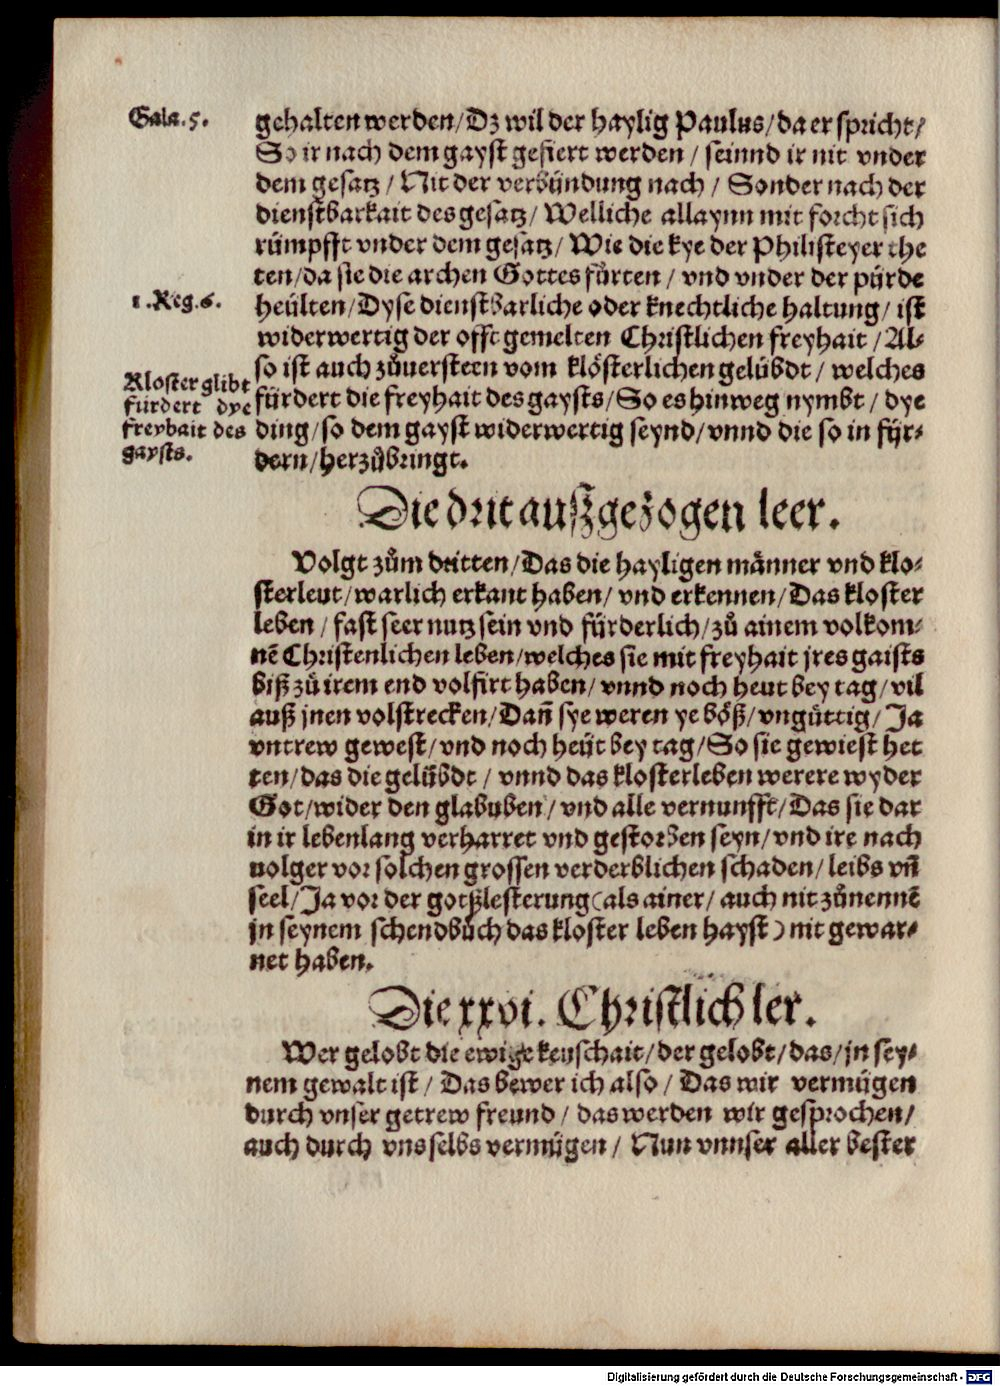 Gala.5.
gehalten werden/Dz wil der haylig Paulus/da er spricht/
So ir nach dem gayst gefiert werden / seinnd ir nit vnder
dem gesatz / Nit der verbündung nach / Sonder nach der
dienstbarkait des gesatz/ Welliche allaynn mit forcht sich
rümpfft vnder dem gesatz/ Wie die kye der Philisteyer the
ten/da sie die archen Gottes fůrten / vnd vnder der pürde
1.Reg.6.
heülten/Dyse dienstbarliche oder knechtliche haltung/ ist
widerwertig der offt gemelten Christlichen freyhait /Al-
so ist auch zůuersteen vom klösterlichen gelübdt / welches
Kloster glibt
fürdert dye
freyhait des
gaysts.
fürdert die freyhait des gaysts/So es hinweg nymbt / dye
ding/so dem gayst widerwertig seynd/vnnd die so in fyr-
dern/herzůbringt.
Die drit außgezogen leer.
Volgt zům dritten/Das die hayligen männer vnd klo-
sterleut/warlich erkant haben/ vnd erkennen/Das kloster
leben / fast seer nutz sein vnd fürderlich/zů ainem volkom-
nē Christenlichen leben/welches sie mit freyhait jres gaists
biß zů irem end volfirt haben/ vnnd noch heut bey tag/ vil
auß jnen volstrecken/Dañ sye weren ye böß/vngüttig/Ja
vntrew gewest/vnd noch heüt bey tag/So sie gewiest het
ten/das die gelübdt / vnnd das klosterleben werere wyder
Got/wider den glabuben/ vnd alle vernunfft/Das sie dar
in ir lebenlang verharret vnd gestorben seyn/vnd ire nach
uolger vor solchen grossen verderblichen schaden/leibs vñ
seel/Ja vor der gotßlesterung(als ainer/ auch nit zůnennē
jn seynem schendbůch das kloster leben hayst) nit gewar-
net haben.
Die xxvi. Christlich ler.
Wer gelobt die ewige keuschait/der gelobt/das/jn sey-
nem gewalt ist / Das bewer ich also / Das wir vermügen
durch vnser getrew freund / das werden wir gesprochen/
auch durch vns selbs vermügen / Nun vnnser aller bester
Digitalisierung gefördert durch die Deutsche Forschungsgemeinschaft - DFG